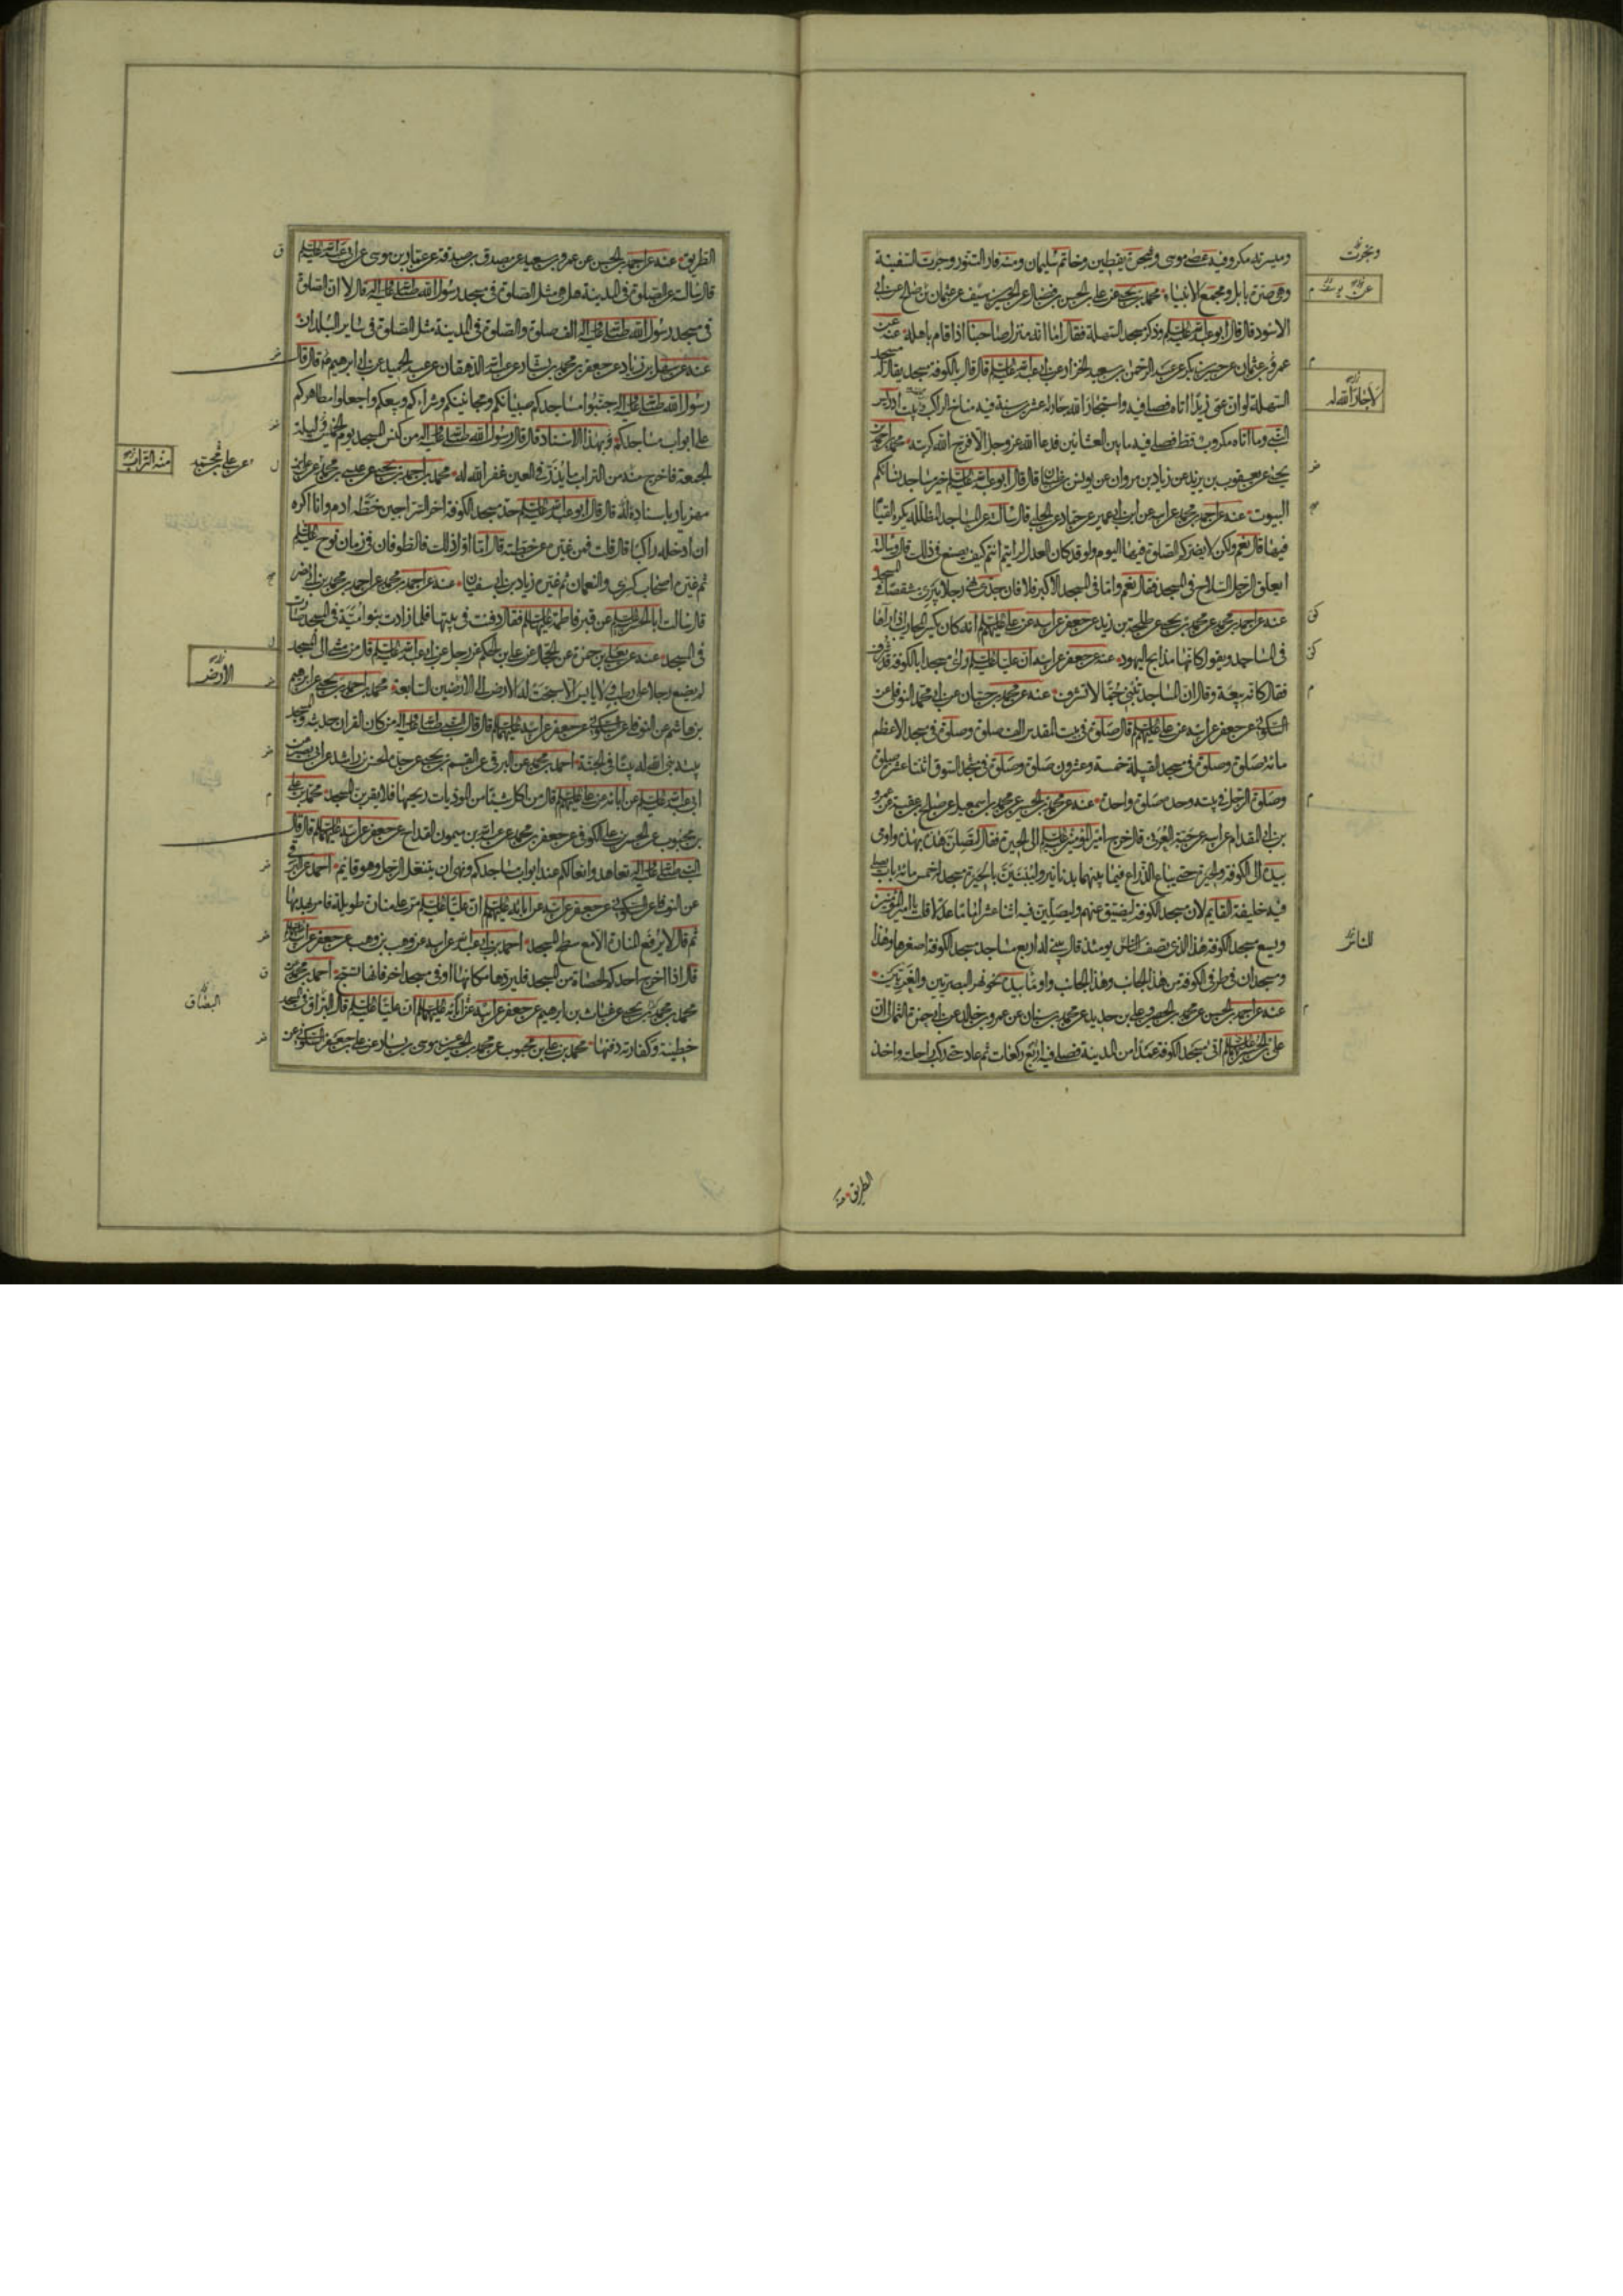 وميسرته مكر وفيه عصى موسى وشجرة يقطين وخاتم سليمان ومنه فار التنور وجرت السفينة
وهي صرة بابل ومجمع الانبياء محمد بن يحيى عن علي بن الحسن بن فضال عن الحسين بن سيف عن عثمان بن صالح عن ابي
الاسود قال قال ابو عبد الله عليه السلم وذكر مسجد السهلة فقال اما انه منزل صاحبنا اذا قام باهله عنه عن
عمرو بن عثمان عن حسن بن بكر عن عبد الرحمن بن سعيد الخزاز عن ابي عبد الله عليه السلم قال قال بالكوفة مسجد يقال له مسجد
السهلة لو ان عمي زيدا اتاه فصلى فيه واستجار الله جاره عشرين سنة فيه مناخ الراكب وبيت ادريس
النبي وما اتاه مكروب قط فصلى فيه ما بين العشائين فدعا الله عز وجل الا فرج الله كربته محمد بن احمد بن
يحيى عن يعقوب بن يزيد عن زياد بن مروان عن يونس بن ظبيان قال قال ابو عبد الله عليه السلم خير مساجد نسائكم
البيوت عنه عن احمد بن محمد عن ابيه عن ابن ابي عمير عن حماد عن الحلبي قال سالته عن المساجد المظللة يكره القيام
فيها قال نعم ولكن لا يضركم الصلوة فيها اليوم ولو قد كان العدل لرايتم انتم كيف يصنع في ذلك قال وسالته
ايعلق الرجل السلاح في المسجد فقال نعم واما في المسجد الاكبر فلا فان جدي نهى رجلا يبري مشقصا في المسجد
عنه عن احمد بن محمد عن محمد بن يحيى عن طلحة بن زيد عن جعفر عن ابيه عن علي عليهم السلم انه كان يكسر المحاريب اذا راها
في المساجد ويقول كانها مذابح اليهود عنه عن جعفر عن ابيه ان عليا عليه السلم راى مسجدا بالكوفة قد شرف
فقال كانه بيعة وقال ان المساجد تبنى جما لا تشرف عنه عن محمد بن حسان عن ابي محمد النوفلي عن
السكوني عن جعفر عن ابيه عن علي عليهم السلم قال صلوة في بيت المقدس الف صلوة وصلوة في مسجد الاعظم
مائة صلوة وصلوة في مسجد القبيلة خمسة وعشرون صلوة وصلوة في مسجد السوق اثنتا عشر صلوة
وصلوة الرجل في بيته وحده صلوة واحدة عنه عن محمد بن الحسين عن محمد بن اسمعيل عن صالح بن عقبة عن عمرو
بن ابي المقدام عن ابيه عن حبة العرني قال خرج امير المؤمنين عليه السلم الى الحيرة فقال لتصلن هذه بهذه واومى
بيده الى الكوفة والحيرة حتى يباع الذراع فيما بينهما بدنانير وليبنين بالحيرة مسجد له خمس مائة باب يصلي
فيه خليفة القايم لان مسجد الكوفة ليضيق عنهم وليصلين فيه اثنا عشر اماما عدلا قلت يا امير المؤمنين
ويسع مسجد الكوفة هذا الذي تصف الناس يومئذ قال يبنى له اربع مساجد مسجد الكوفة اصغرها وهذا
ومسجدان في طرفي الكوفة من هذا الجانب وهذا الجانب واومأ بيده نحو نهر البصريين والغريين
عنه عن احمد بن الحسن عن محمد بن الحسين وعلي بن حديد عن محمد بن سنان عن عمرو بن خالد عن ابي حمزة الثمالي ان
علي بن الحسين عليهما السلم اتى مسجد الكوفة عمدا من المدينة فصلى فيه اربع ركعات ثم عاد حتى ركب راحلته واخذ
وتخرت
عن
لاجاره الله له
للناس
الطريق
الطريق عنه عن احمد بن الحسن عن عمرو بن سعيد عن مصدق بن صدقة عن عمار بن موسى عن ابي عبد الله عليه السلم
قال سالته عن الصلوة في المدينة هل هي مثل الصلوة في مسجد رسول الله صلى الله عليه واله قال لا ان الصلوة
في مسجد رسول الله صلى الله عليه واله الف صلوة والصلوة في المدينة مثل الصلوة في ساير البلدان
عنه عن سهل بن زياد عن جعفر بن محمد بن بشار عن عبد الله الدهقان عن عبد الحميد عن ابي ابراهيم قال قال
رسول الله صلى الله عليه واله جنبوا مساجدكم صبيانكم ومجانينكم وشراءكم وبيعكم واجعلوا مطاهركم
على ابواب مساجدكم وبهذا الاسناد قال قال رسول الله صلى الله عليه واله من كنس المسجد يوم الخميس وليلة
الجمعة فاخرج منه من التراب ما يذر في العين غفر الله له محمد بن احمد بن يحيى عن عيسى بن محمد عن علي بن
مهزيار باسناد له قال قال ابو عبد الله عليه السلم حد مسجد الكوفة اخر السراجين خطه ادم وانا اكره
ان ادخله راكبا قال قلت فمن غيره عن خطته قال اما اول ذلك فالطوفان في زمان نوح عليه السلم
ثم غيره اصحاب كسرى والنعمان ثم غيره زياد بن ابي سفيان عنه عن احمد بن محمد عن احمد بن محمد بن ابي نصر
قال سالت ابا الحسن عليه السلم عن قبر فاطمة عليها السلم فقال دفنت في بيتها فلما زادت بنو امية في المسجد صارت
في المسجد عنه عن يعلى بن حمزة عن الحجال عن علي بن الحكم عن رجل عن ابي عبد الله عليه السلم قال من مشى الى المسجد
لم يضع رجلا على رطب ولا يابس الا سبحت له الارض الى الارضين السابعة محمد بن احمد بن يحيى عن ابراهيم
بن هاشم عن النوفلي عن السكوني عن جعفر عن ابيه عليهما السلم قال قال النبي صلى الله عليه واله من كان القران حديثه والمسجد
بيته بنى الله له بيتا في الجنة احمد بن محمد عن البرقي عن القسم بن يحيى عن جده الحسن بن راشد عن ابي بصير عن
ابي عبد الله عليه السلم عن ابائه عن علي عليهم السلم قال من اكل شيئا من المؤذيات ريحها فلا يقربن المسجد محمد بن علي
بن محبوب عن الحسن بن علي الكوفي عن جعفر بن محمد عن عبد الله بن ميمون القداح عن جعفر عن ابيه عليهما السلم قال قال
النبي صلى الله عليه واله تعاهدوا نعالكم عند ابواب مساجدكم ونهى ان يتنعل الرجل وهو قايم احمد عن البرقي
عن النوفلي عن السكوني عن جعفر عن ابيه عن ابائه عليهم السلم ان عليا عليه السلم مر على منارة طويلة فامر بهدمها
ثم قال لا يرفع المنارة الا مع سطح المسجد احمد بن ابي عبد الله عن ابيه عن وهب بن وهب عن جعفر عن ابيه عليهما السلم
قال اذا اخرج احدكم الحصاة من المسجد فليردها مكانها او في مسجد اخر فانها تسبح احمد بن محمد عن
محمد بن يحيى عن غياث بن ابراهيم عن جعفر عن ابيه عن ابائه عليهم السلم ان عليا عليه السلم قال البزاق في المسجد
خطيئة وكفارته دفنها محمد بن علي بن محبوب عن محمد بن الحسين عن موسى بن يسار عن علي بن جعفر السكوني عن
عن علي بن محمد
منه التراب
الارض
البصاق